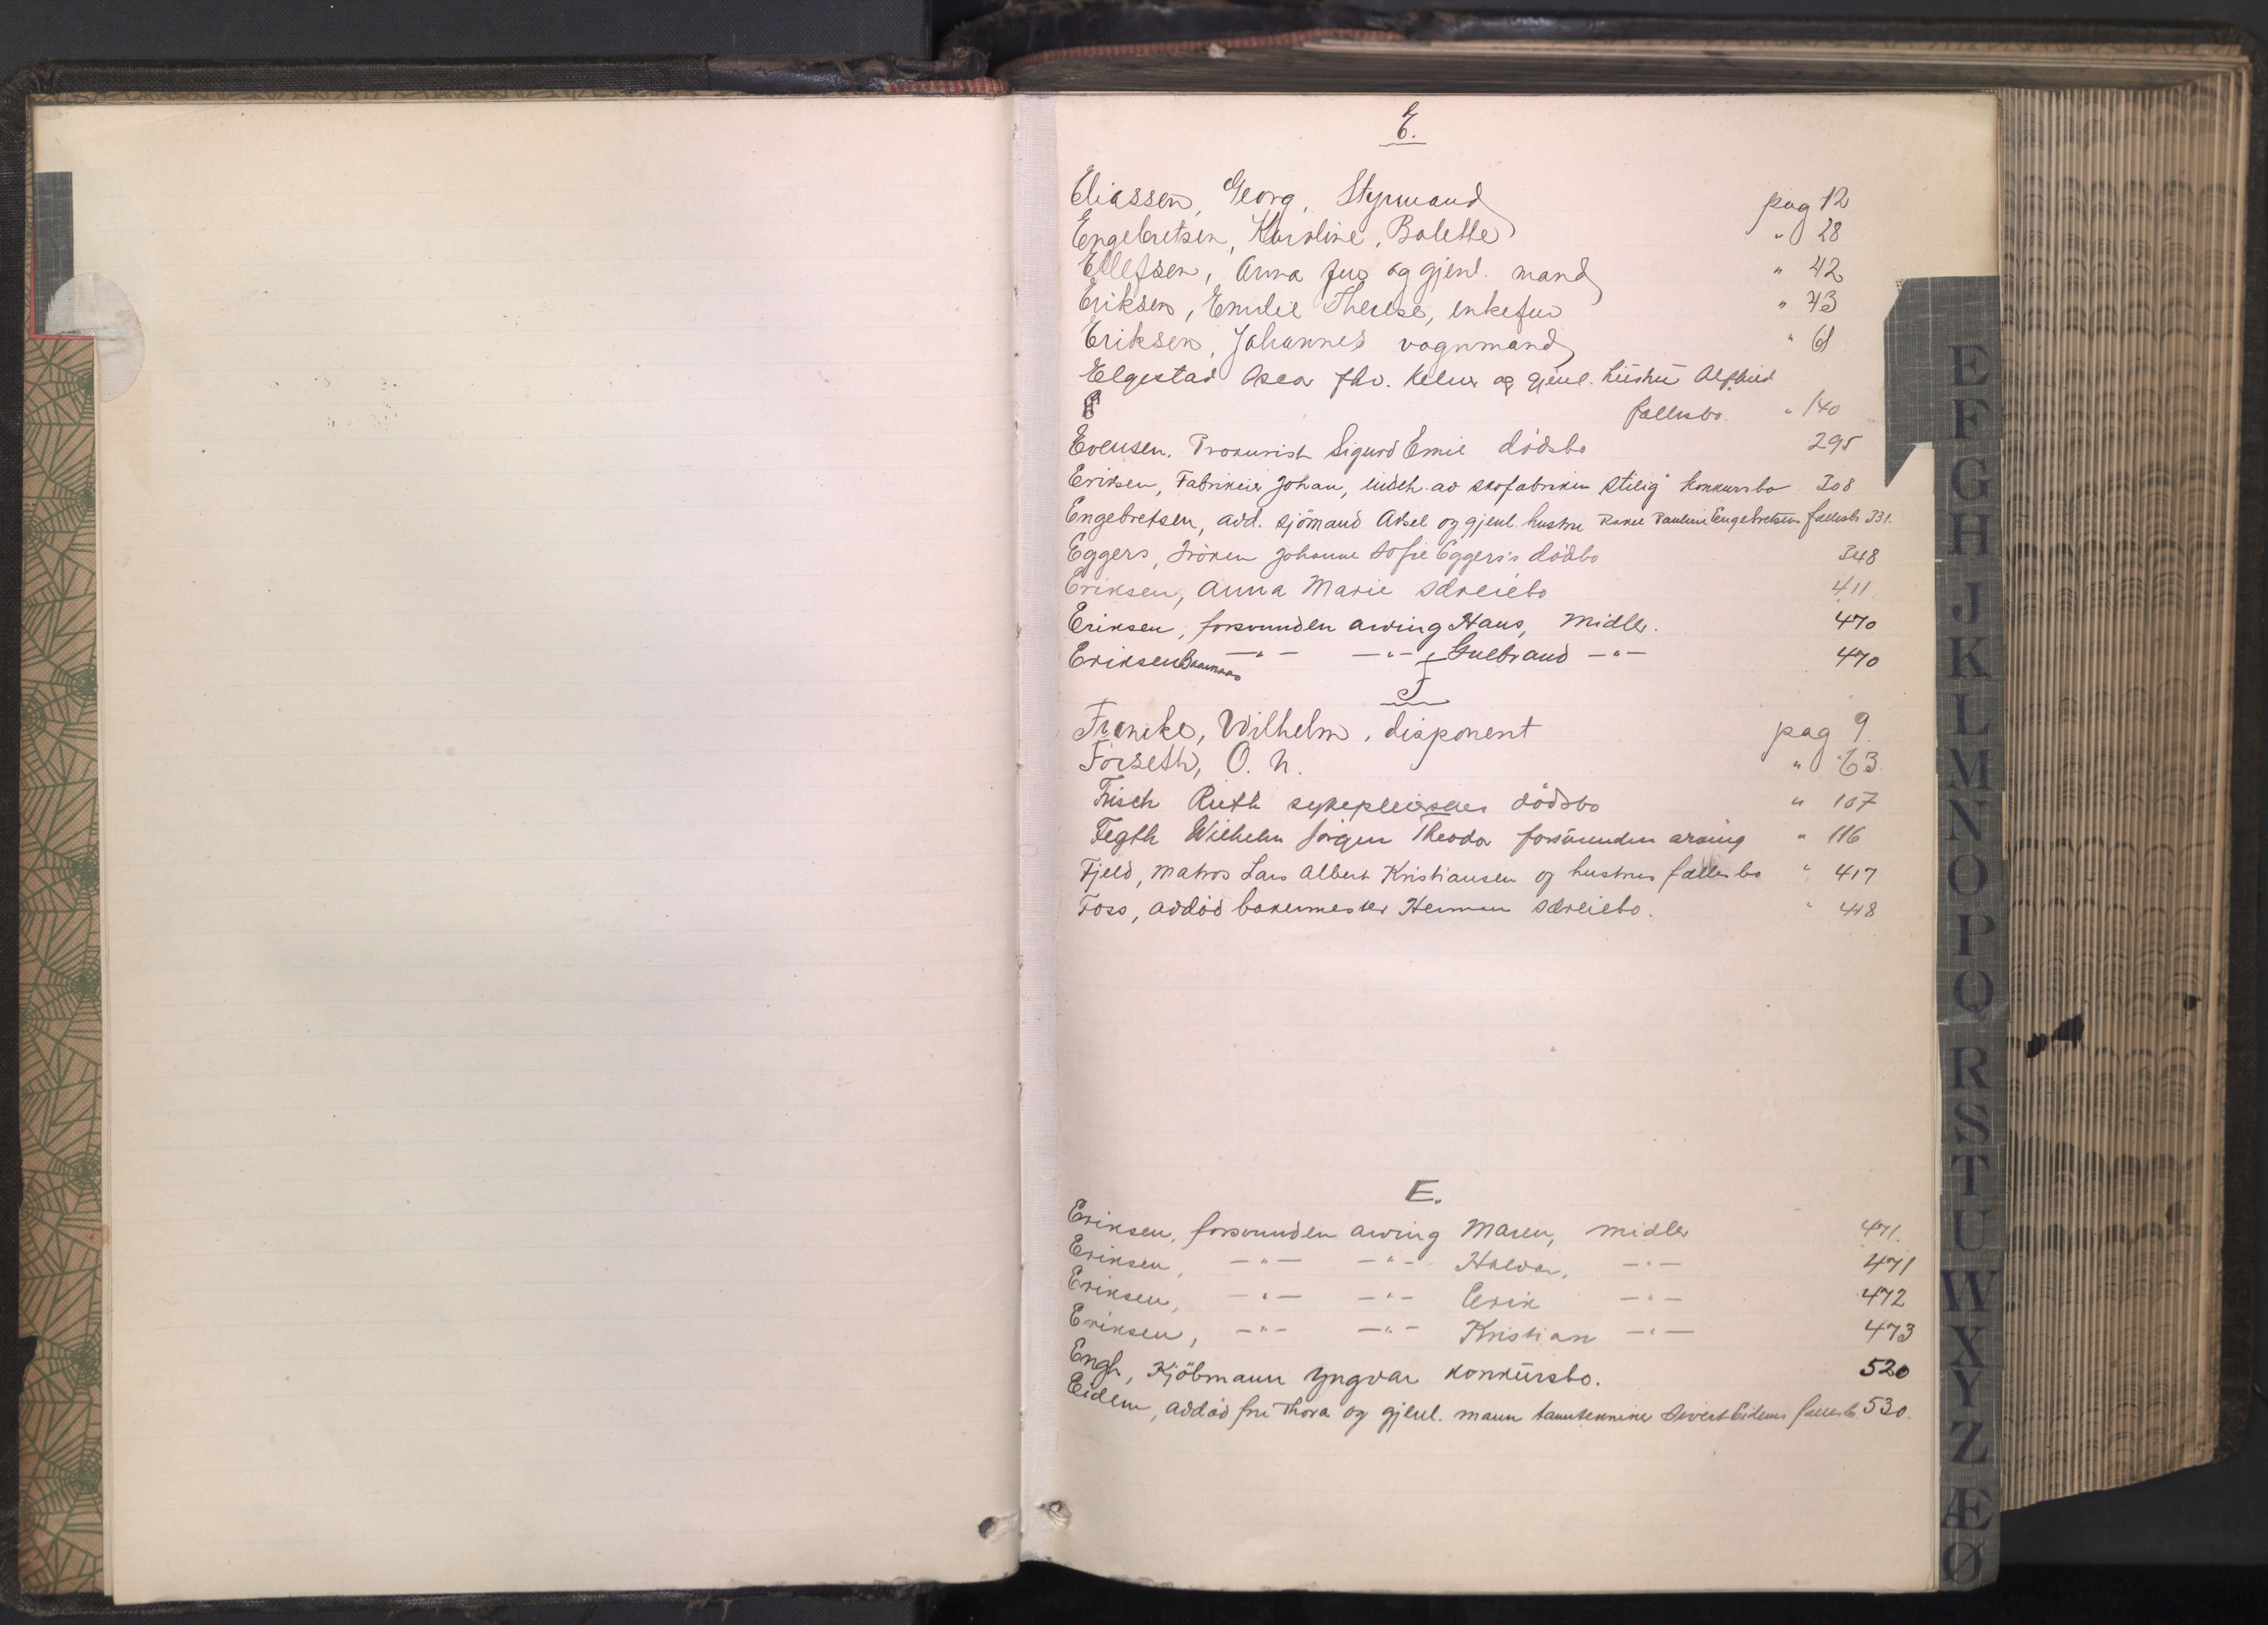 E.
Eliassen, Georg, Styrmand pag 12
Engebretsen, Karoline, Bolette " 28
Ellefsen, Anna fru og gjenl. mand " 42
Eriksen, Emilie Therese, enkefru " 43
Eriksen, Johannes vognmand " 61
Elgestad Osca fhv. Kelner og gjenl. hustru Alfhild
fællesbo. " 140
Evensen. Prokurist Sigurd Emil dödsbo 295
Eriksen, Fabrikeier Johan, indeh. av skofabriken Stilig konkursbo 308
Engebretsen, avd. sjömand Aksel og gjenl. hustru Rakel Pauline Engebretsens fællesb. 331.
Eggers, Fröken Johanne Sofie Eggers's dödsbo 348
Eriksen, Anna Marie særeiebo 411
Eriksen, forsvunden arving Hans, Midler. 470
Eriksen –"– –"– Gulbrand –"– 470
F
Francke, Wilhelm, disponent pag 9.
Forseth, O. N. " 63.
Frisch Ruth sykepleierskes dödsbo " 107
Fegth Wilhelm Jörgen Theodor forsvunden arving " 116
Fjeld, Matros Lars Albert Kristiansen og hustrus fællesbo " 417
Foss, avdöd bakermester Herman særeiebo. " 418
E.
Eriksen, forsvunden arving Maren, midler 471.
Eriksen, –"– –"– Halvor, –"– 471
Eriksen, –"– –"– Erik –"– 472
Eriksen, –"– –"– Kristian –"– 473
Engh, Kjöbmann Yngvar konkursbo. 520
Eidem, avdöd fru Thora og gjenl. mann tanntekniker Sivert Eidems fællesb. 530.
E
F
G
H
J
K
L
M
N
O
P
Q
R
S
T
U
W
X
Y
Z
Æ
Ø